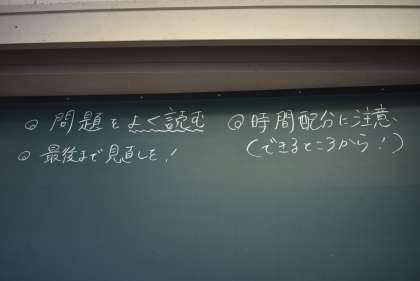 ◎ 問題をよく読む
◎ 最後まで見直しを!
◎ 時間配分に注意、
(できるところから!)